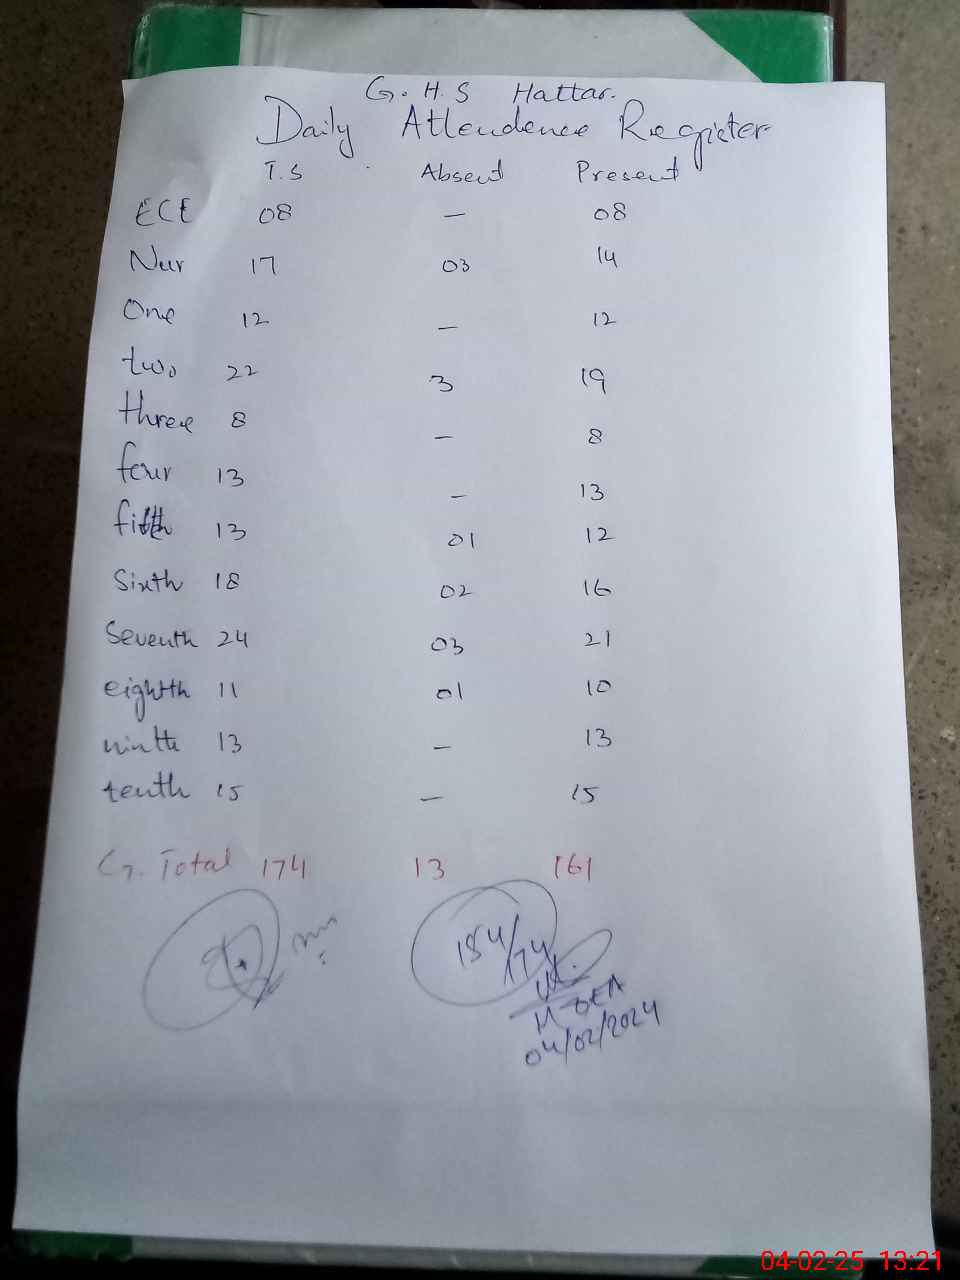 G.H.S Hattar.
Daily Attendence Register
T.S Absent Present
ECE 08 — 08
Nur 17 03 14
One 12 — 12
two 22 3 19
three 8 — 8
four 13 — 13
fifth 13 01 12
Sixth 18 02 16
Seventh 24 03 21
eighth 11 01 10
ninth 13 — 13
tenth 15 — 15
G. Total 174 13 161
184/74
04/02/2024
04-02-25 13:21